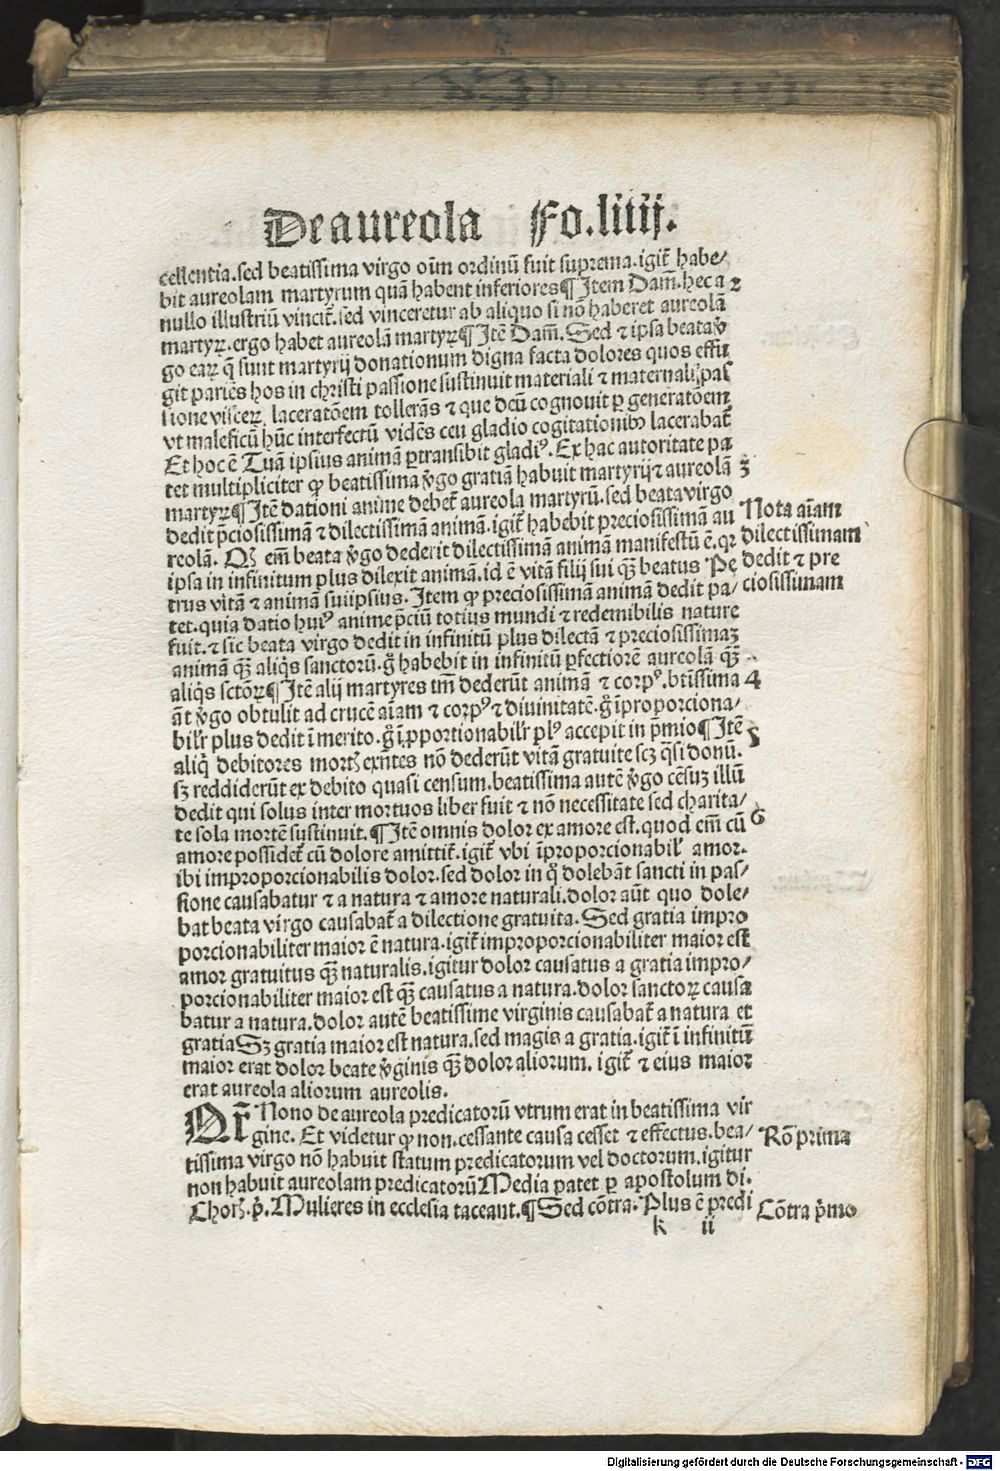 De aureola Fo.liiij.
cellentia.sed beatissima virgo oīm ordinū fuit suprema.igit̄ habe/
bit aureolam martyrum quā habent inferiores¶Item Dam̄.hec a 2
nullo illustriū vincit̄.sed vinceretur ab aliquo si nō haberet aureolā
martyꝝ.ergo habet aureolā martyꝝ¶Itē Dam̄.Sed ⁊ ipsa beata v̓
go eaꝝ q̄ sunt martyrij donationum digna facta dolores quos effu
git pariēs hos in christi passione sustinuit materiali ⁊ maternali pas
sione visceꝝ laceratōem tollerās ⁊ que dēū cognouit ꝑ generatōem
vt maleficū hūc interfectū vidēs ceu gladio cogitationibꝰ lacerabat̄
Et hoc ē Tuā ipsius animā ꝑtransibit gladiꝰ.Ex hac autoritate pa
tet multipliciter ꝙ beatissima v̓go gratiā habuit martyrij ⁊ aureolā 3
martyꝝ¶Itē dationi anime debet̄ aureola martyrū.sed beata virgo
dedit p̄ciosissimā ⁊ dilectissimā animā.igit̄ habebit preciosissimā au
reolā. Qꝫ em̄ beata v̓go dederit dilectissimā animā manifestū ē.qꝛ
ipsa in infinitum plus dilexit animā.id ē vitā filij sui qꝫ̄ beatus Pe
trus vitā ⁊ animā suiipsius.Item ꝙ preciosissimā animā dedit pa/
tet.quia datio huiꝰ anime p̄ciū totius mundi ⁊ redemibilis nature
fuit.⁊ sic beata virgo dedit in infinitū plus dilectā ⁊ preciosissimaꝫ
animā qꝫ̄ aliq̓s sanctorū.g̓ habebit in infinitū ꝑfectiorē aureolā qꝫ̄
aliq̓s sctōꝝ¶Itē alij martyres tm̄ dederūt animā ⁊ corpꝰ.btīssima 4
āt v̓go obtulit ad crucē aīam ⁊ corpꝰ ⁊ diuinitatē.g̓ īproporciona/
bilr̄ plus dedit ī merito.g̓ īꝓportionabilr̄ plꝰ accepit in p̄mio¶Itē 5
aliq̓ debitores mortꝭ exn̄tes nō dederūt vitā gratuite scꝫ q̄si donū.
sꝫ reddiderūt ex debito quasi censum.beatissima autē v̓go cēsuꝫ illū
dedit qui solus inter mortuos liber fuit ⁊ nō necessitate sed charita/
te sola mortē sustinuit.¶Itē omnis dolor ex amore est.quod em̄ cū 6
amore possidet̄ cū dolore amittit̄.igit̄ vbi īproporcionabil̓ amor.
ibi improporcionabilis dolor.sed dolor in q̓ dolebāt sancti in pas/
sione causabatur ⁊ a natura ⁊ amore naturali.dolor aūt quo dole/
bat beata virgo causabat̄ a dilectione gratuita.Sed gratia impro
porcionabiliter maior ē natura.igit̄ improporcionabiliter maior est
amor gratuitus qꝫ̄ naturalis.igitur dolor causatus a gratia impro/
porcionabiliter maior est qꝫ̄ causatus a natura.dolor sanctoꝝ causa
batur a natura.dolor autē beatissime virginis causabat̄ a natura et
gratia Sꝫ gratia maior est natura.sed magis a gratia.igit̄ ī infinitū
maior erat dolor beate v̓ginis qꝫ̄ dolor aliorum. igit̄ ⁊ eius maior
erat aureola aliorum aureolis.
Qr̄ Nono de aureola predicatorū vtrum erat in beatissima vir
gine. Et videtur ꝙ non.cessante causa cesset ⁊ effectus.bea/
tissima virgo nō habuit statum predicatorum vel doctorum.igitur
non habuit aureolam predicatorū Media patet ꝑ apostolum di.
Chorꝭ.p̓.Mulieres in ecclesia taceant.¶Sed cōtra.Plus ē predi
k ii
Nota aīam
dilectissimam
dedit ⁊ pre
ciosissimam
Rō prima
Cōtra p̓mo
Digitalisierung gefördert durch die Deutsche Forschungsgemeinschaft - DFG